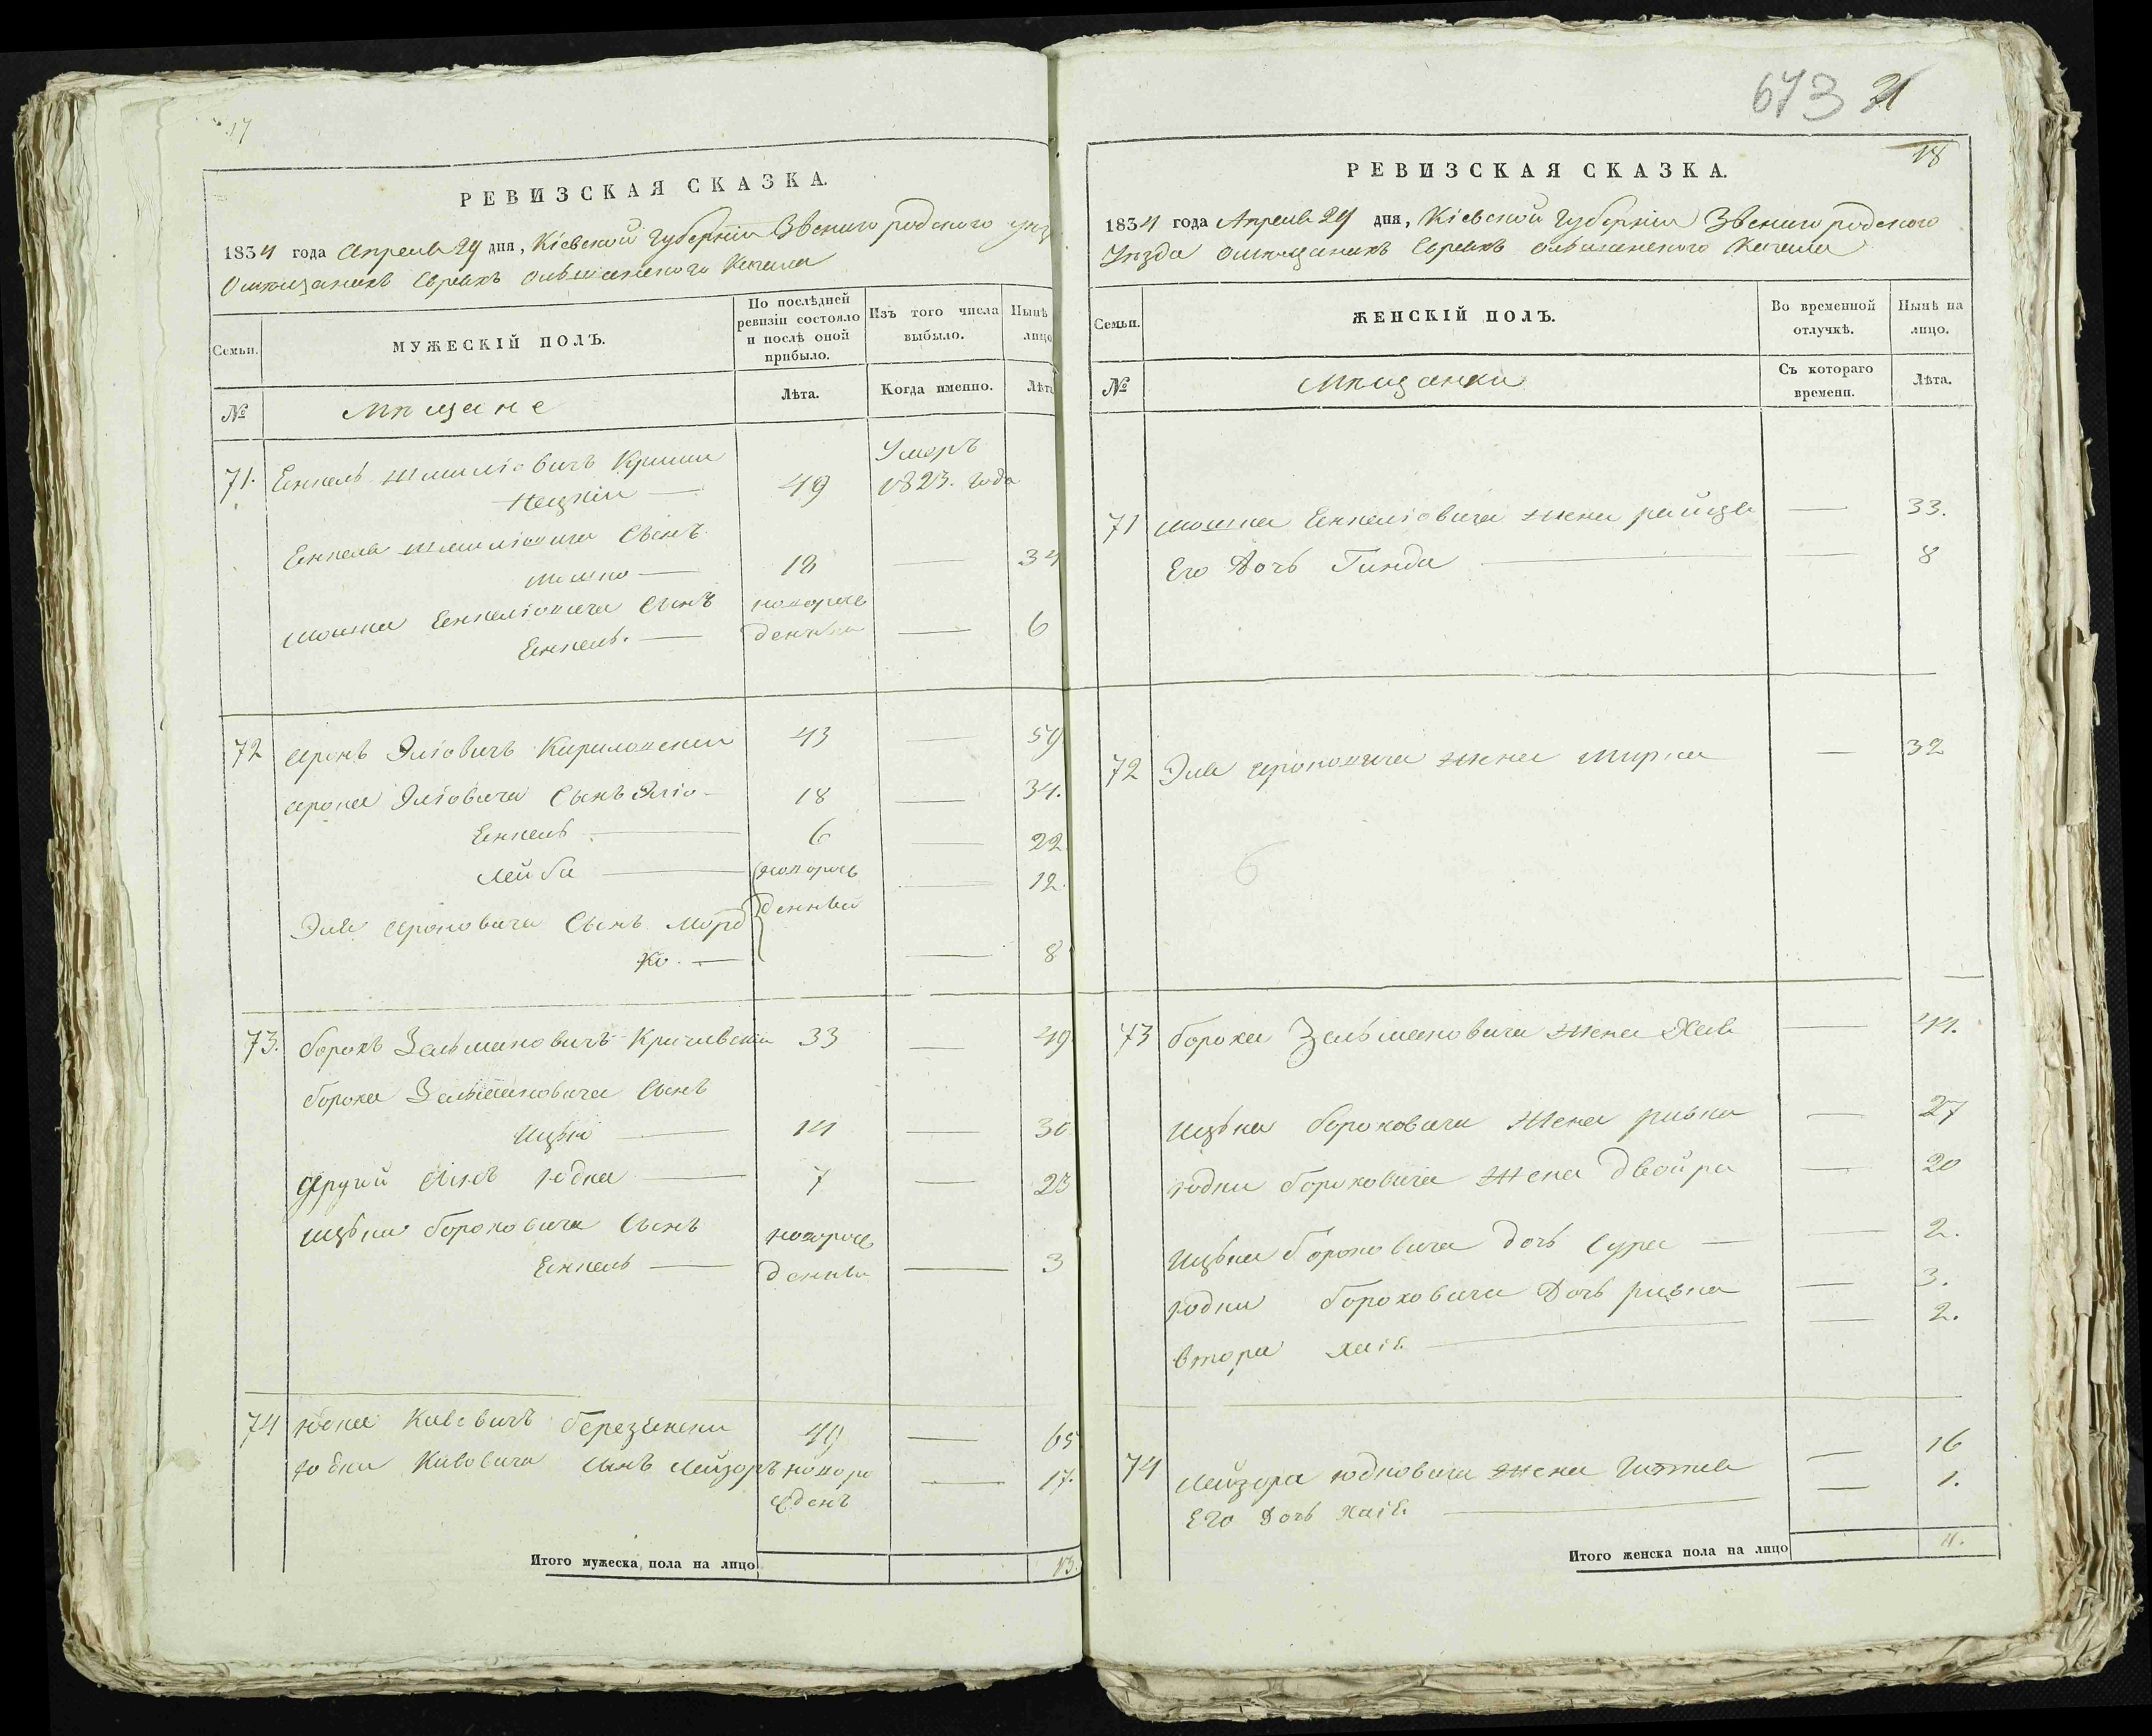 17
РЕВИЗСКАЯ СКАЗКА.
1834 года Апреля 29 дня, Кіевской Губерніи Звенигородского
О мѣщанахъ Евреяхъ Ольшанского Кагала
Семьи.
МУЖЕСКІЙ ПОЛЪ.
По послѣдней ревизіи состояло и послѣ оной прибыло.
Изъ того числа выбыло.
Нынѣ лицо
№
Мѣщане
Лѣта.
Когда именно.
Лѣта
71. Еннель Шмиліовичъ 49 Умеръ 1823. года
Еннеля Шмиліовича Сынъ
Мошко — 18 — 34
Мошки Еннеліовича Сынъ новорож
Еннель. — денный — 6
72 Аронъ Эліовичъ Кириловский 43 — 59
Арона Эліовича Сынъ Эліо — 18 — 34.
Еннель — 6 — 22
Лейба — новорож — 12.
Эли Ароновича Сынъ Морд денный
ко. — — 8
73. Борохъ Зельмановичъ Кричевский 33 — 49
Бороха Зельмановича Сынъ
Ицко — 14 — 30
Другий Сынъ Юдка — 7 — 23
Ицька Бороховича Сынъ новорож
Еннель — денный — 3
74 Юдка Кивовичъ Березенски 49 — 65
Юдки Кивовича Сынъ Лейзоръ новоро — 17.
жденъ
Итого мужеска пола на лицо 13.
673 21
18
РЕВИЗСКАЯ СКАЗКА.
1834 года Апреля 29 дня, Кіевской Губерніи Звенигородского
Уезда О мѣщанахъ Евреяхъ Ольшанского Кагала
Семьи.
ЖЕНСКІЙ ПОЛЪ.
Во временной отлучкѣ.
Нынѣ на лицо.
№
Мѣщанки
Съ котораго времени.
Лѣта.
71 Мошка Еннеліовича жена Райця — 33.
Его Дочь Гинда — — 8
72 Эли Ароновича жена Мирка — 32
6
73 Бороха Зельмановича жена Хая — 44.
Ицька Бороховича жена Ривка — 27
Юдки Бороховича жена Двойра — 20
Ицька Бороховича дочь Сура — — 2.
Юдки Бороховича Дочь Ривка — 3.
втора Хаiя — — 2.
74 Лейзора Юдковича жена Гитля — 16
Его Дочь Хаiя — — 1.
Итого женска пола на лицо 11.